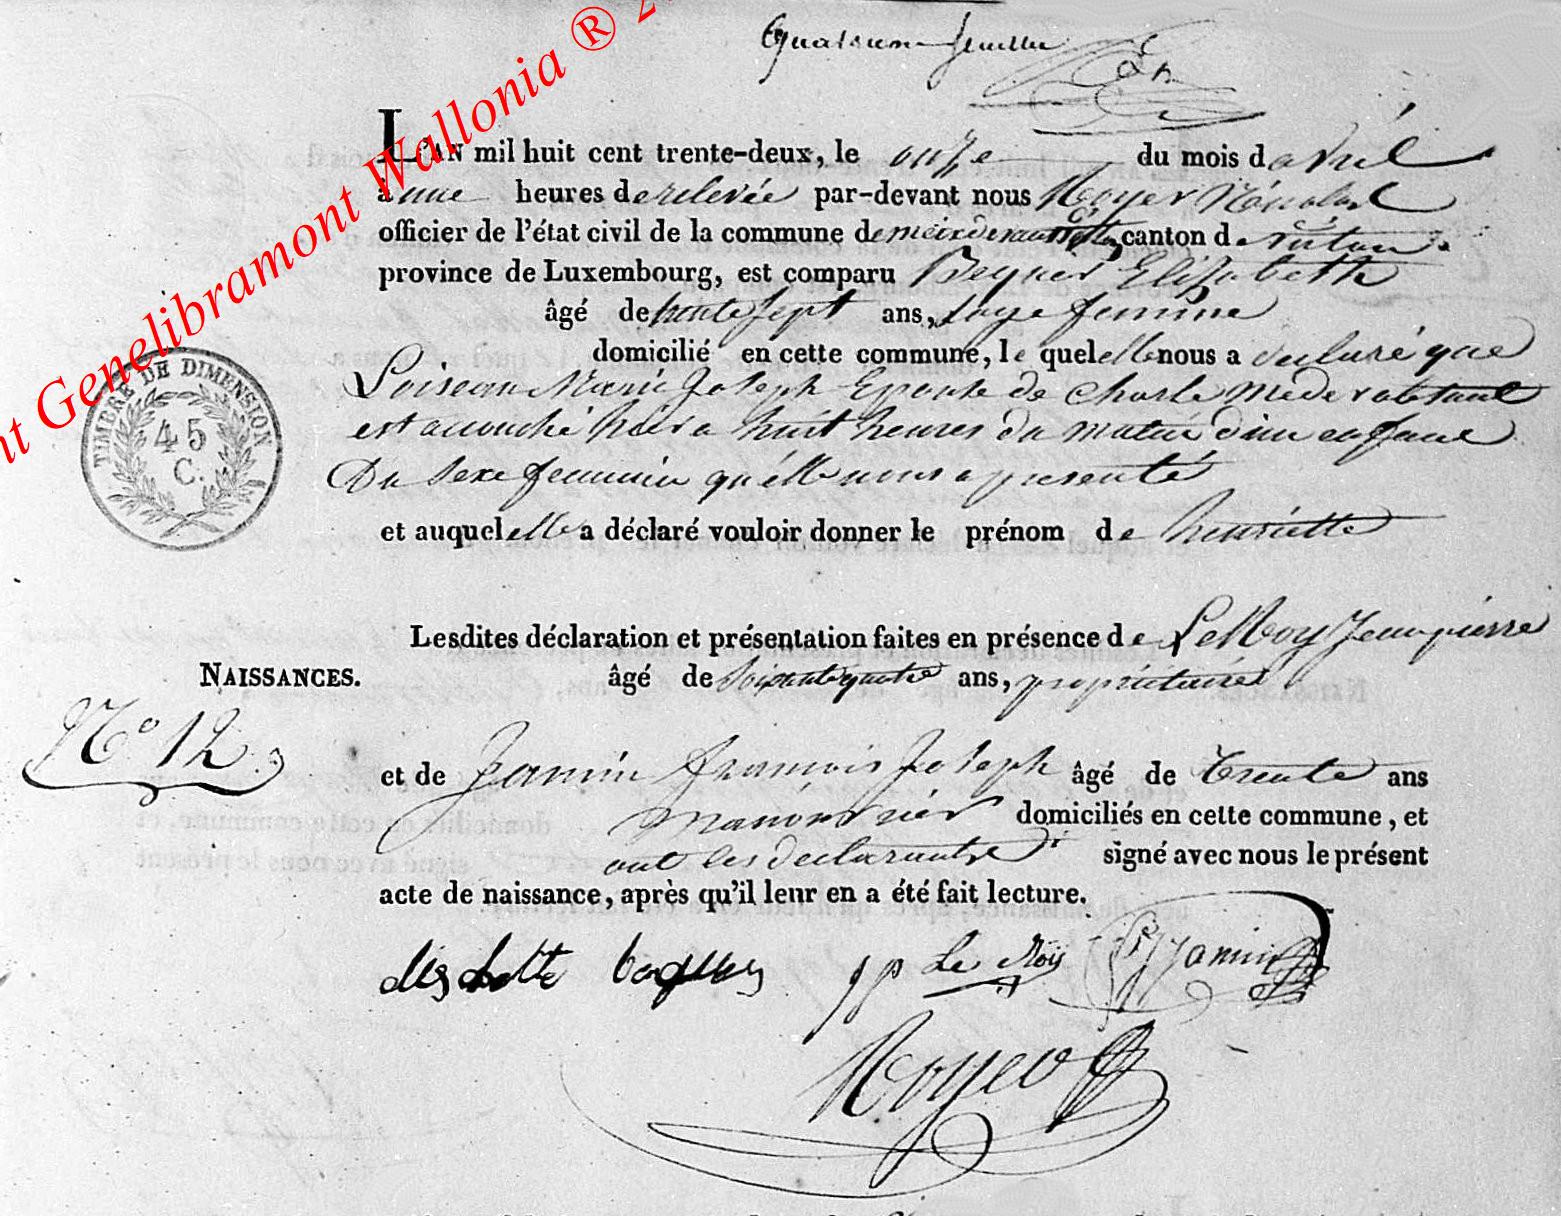 feuillet
L'AN mil huit cent trente-deux, le onze du mois d avril
à une heures de relevée par-devant nous Noyer Nicolas
officier de l'état civil de la commune de meix devant virton, canton de virton
province de Luxembourg, est comparu Elisabeth
âgé de trente sept ans, sage femme
domicilié en cette commune, le quel elle nous a déclaré que
Loiseau Marie Joseph Epouse de Charle
est accouché hier a huit heures du matin d'un enfant
Du sexe feminin qu'elle nous a presenté
et auquel elle a déclaré vouloir donner le prénom de henriette
Lesdites déclaration et présentation faites en présence de Le Roy Jean pierre
NAISSANCES. âgé de soixante quatre ans, propriétaire
N° 12
et de Jamin François Joseph âgé de trente ans
manouvrier domiciliés en cette commune, et
ont les declarants signé avec nous le présent
acte de naissance, après qu'il leur en a été fait lecture.
jp Le Roy Jamin
Noyer
TIMBRE DE DIMENSION
45
C.
nt Genelibramont Wallonia ® 2